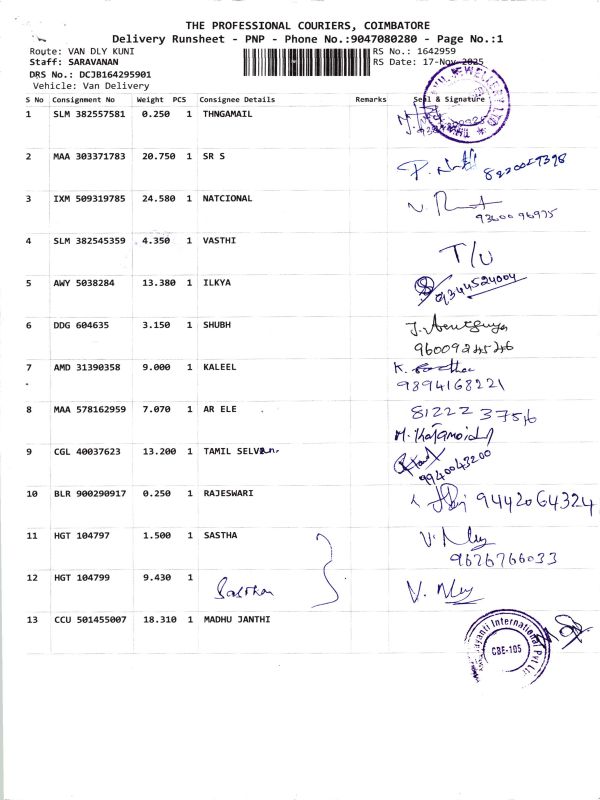 THE PROFESSIONAL COURIERS, COIMBATORE
Delivery Runsheet - PNP - Phone No.:9047080280 - Page No.:1
Route: VAN DLY KUNI RS No.: 1642959
Staff: SARAVANAN RS Date: 17-Nov-2025
DRS No.: DCJB164295901
Vehicle: Van Delivery
S No Consignment No Weight PCS Consignee Details Remarks Seal & Signature
1 SLM 382557581 0.250 1 THNGAMAIL
2 MAA 303371783 20.750 1 SR S
3 IXM 509319785 24.580 1 NATCIONAL
9360096975
4 SLM 382545359 4.350 1 VASTHI T/U
5 AWY 5038284 13.380 1 ILKYA
9344524004
6 DDG 604635 3.150 1 SHUBH
9600924546
7 AMD 31390358 9.000 1 KALEEL
9894168221
8 MAA 578162959 7.070 1 AR ELE 81222 3756
9 CGL 40037623 13.200 1 TAMIL SELVan.
9940043200
10 BLR 900290917 0.250 1 RAJESWARI 9442064324
11 HGT 104797 1.500 1 SASTHA
9626766033
12 HGT 104799 9.430 1 Sasthan
13 CCU 501455007 18.310 1 MADHU JANTHI
International Pvt Ltd
CBE-105